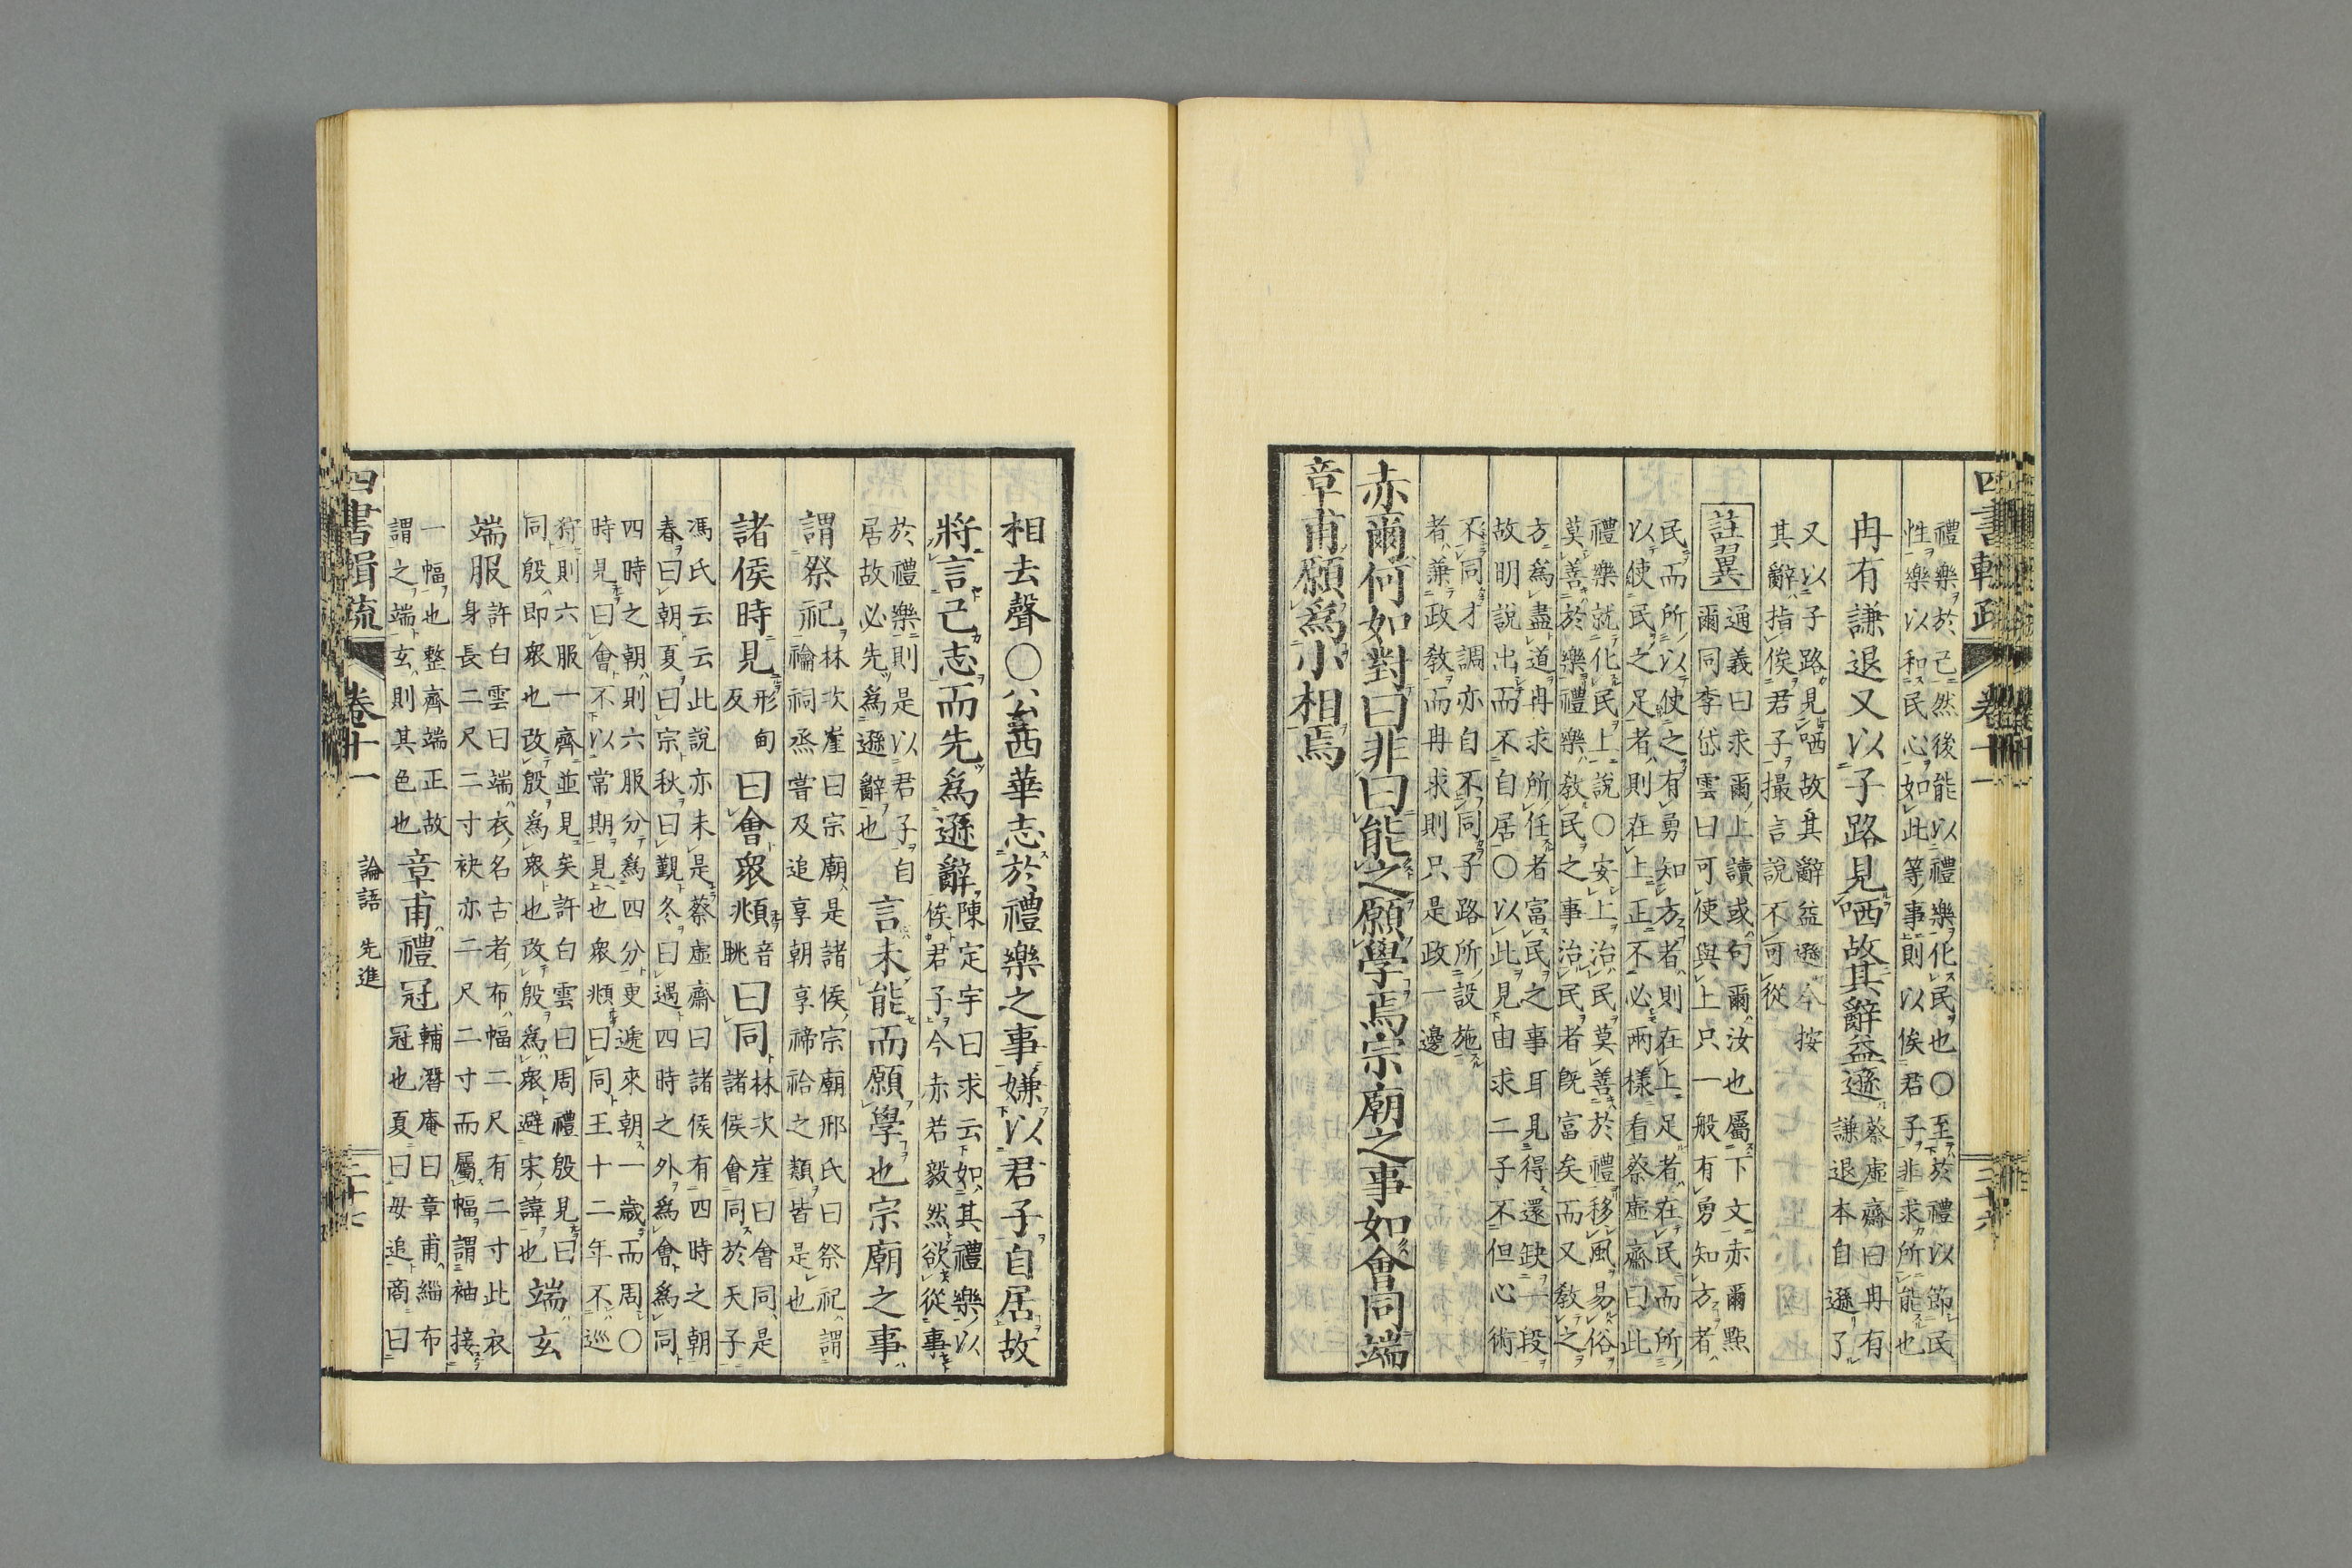 禮樂於己然後能以禮樂化民也○至於禮以節民
性樂以和民心如此等事則以俟君子非求所能也
冉有謙退又以子路見哂故其辭益遜
蔡虛齋曰冉有
謙退本自遜了
又以子路見哂故其辭益遜今按
其辭指俟君子撮言說不可從
註翼
通義曰求爾上讀或句爾汝也屬下文赤爾點
爾同李岱雲曰可使與上只一般有勇知方者
民而所以使之有勇知方者則在上足者在民而所
以使民之足者則在上正不必兩樣看蔡虛齋曰此
禮樂就化民上說○安上治民莫善於禮移風易俗
莫善於樂禮樂教民之事治民者既富矣而又教之
方爲盡道冉求所任者富民之事耳見得還缺一段
故明說出而不自居○以此見由求二子不但心術
不同才調亦自不同子路所設施
者兼政教而冉求則只是政一邊
赤爾何如對曰非曰能之願學焉宗廟之事如會同端
章甫願爲小相焉
四書輯疏 卷十一 三十六
相去聲○公西華志於禮樂之事嫌以君子自居故
將言己志而先爲遜辭
陳定宇曰求云如其禮樂以
俟君子今赤若毅然欲從事
於禮樂則是以君子自
居故必先爲遜辭也
言未能而願學也宗廟之事
謂祭祀
林次崖曰宗廟是諸侯宗廟邢氏曰祭祀謂
禴祠烝嘗及追享朝享禘祫之類皆是也
諸侯時見
形甸
反
曰會衆頫
音
眺
曰同
林次崖曰會同是
諸侯會同於天子
馮氏云云此說亦未是蔡虛齋曰諸侯有四時之朝
春曰朝夏曰宗秋曰覲冬曰遇四時之外爲會爲同
四時之朝則六服分爲四分更遞來朝一歲而周○
時見曰會不以常期見也衆頫曰同王十二年不巡
狩則六服一齊並見矣許白雲曰周禮殷見曰
同殷即衆也改殷爲衆也改殷爲衆避宋諱也
端玄
端服
許白雲曰端衣名古者布幅二尺有二寸此衣
身長二尺二寸袂亦二尺二寸而屬幅謂袖接
一幅也整齊端正故
謂之端玄則其色也
章甫禮冠
輔潛庵曰章甫緇布
冠也夏曰毋追商曰
四書輯疏 卷十一 論語 先進 三十七